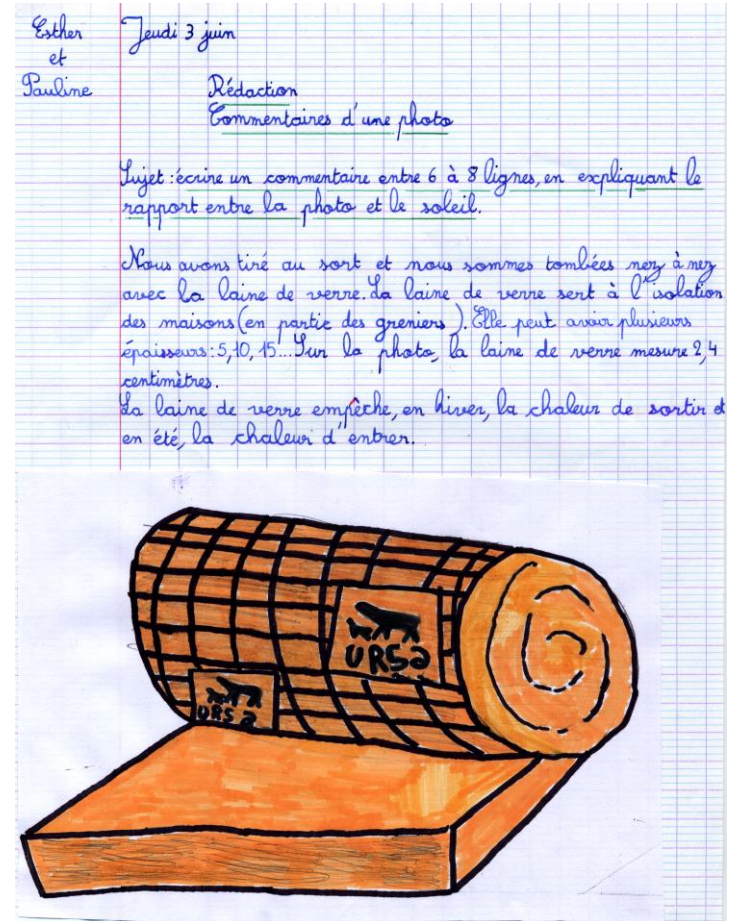 Esther
et
Pauline
Jeudi 3 juin
Rédaction
Commentaires d'une photo
Sujet : écrire un commentaire entre 6 à 8 lignes, en expliquant le
rapport entre la photo et le soleil.
Nous avons tiré au sort et nous sommes tombées nez à nez
avec la laine de verre. La laine de verre sert à l'isolation
des maisons (en partie des greniers). Elle peut avoir plusieurs
épaisseurs : 5, 10, 15... Sur la photo, la laine de verre mesure 2,4
centimètres.
La laine de verre empêche, en hiver, la chaleur de sortir et
en été, la chaleur d'entrer.
URSa
URSa